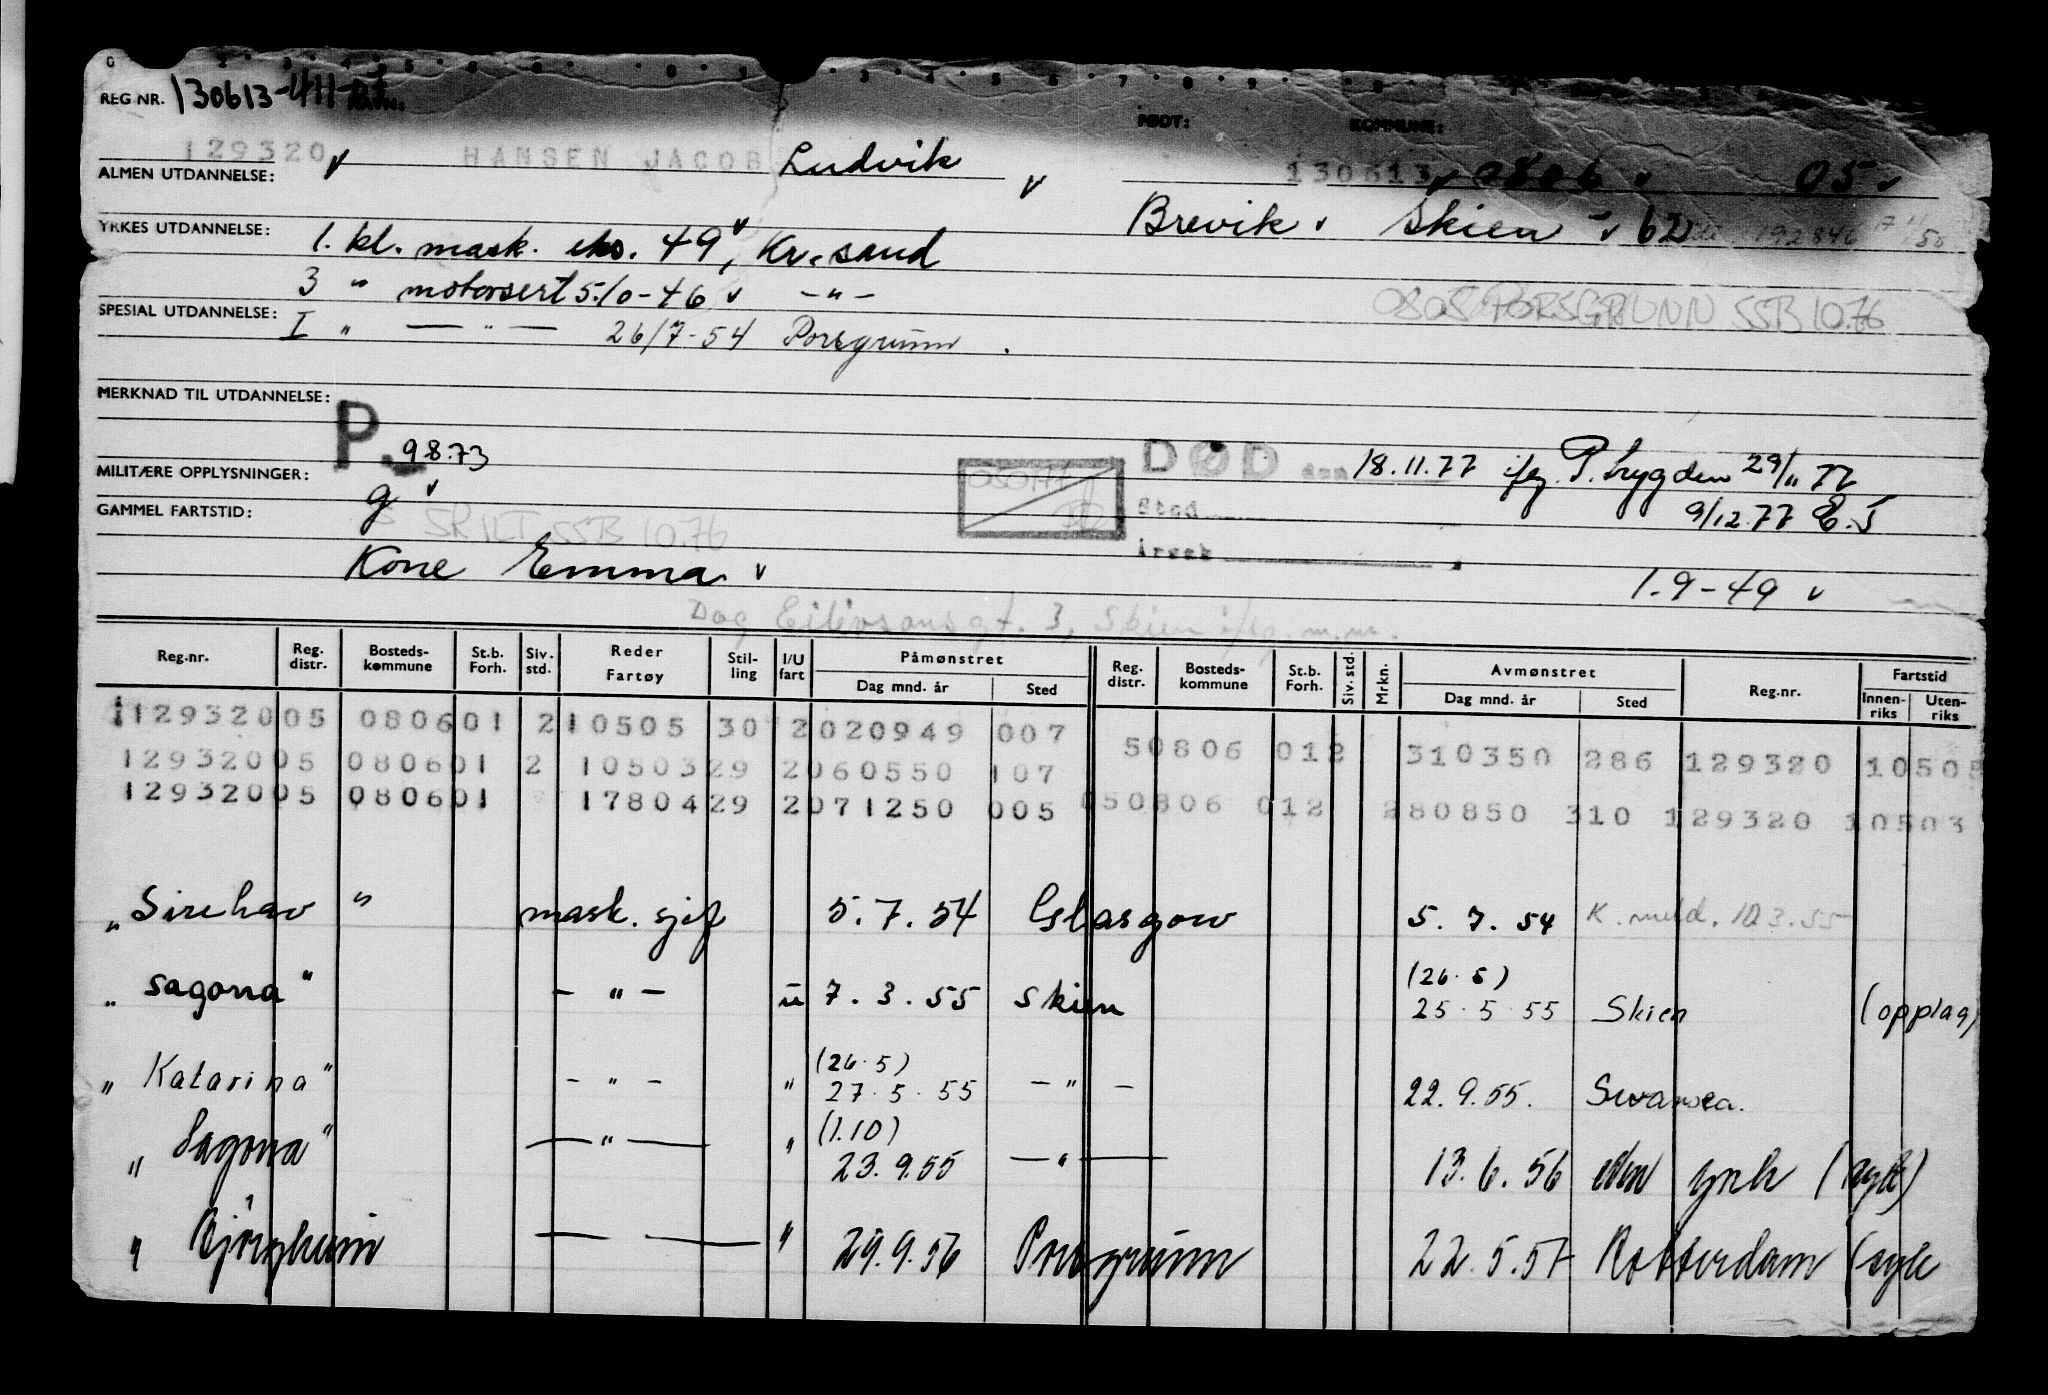 REG NR. 130613-411-
NAVN: FØDT: KOMMUNE:
129320 v HANSEN JACOB Ludvik v 130613 v 0806 v 05 v
ALMEN UTDANNELSE:
Brevik v Skien - v 62
YRKES UTDANNELSE: 1. kl. mask. eks. 49 v, Kr.sand
3 " motorsert 5.10-46 v -"-
0805 PORSGRUNN SSB 10.76
SPESIAL UTDANNELSE: I " —"— 26/7-54 Porsgrunn.
MERKNAD TIL UTDANNELSE:
P. 9.8.73
DØD den 18.11.77 ifg. P.trygden 29/11 77
MILITÆRE OPPLYSNINGER: g v
Sted 9/12.77
GAMMEL FARTSTID:
SKILT SSB 10.76
Årsak
Kone Emma v 1.9-49 v
Dag Eilivsonsgt. 3, Skien
Reg.nr. Reg. distr. Bosteds-kommune St.b. Forh. Siv. std. Reder Fartøy Stil-ling I/U fart Påmønstret Dag mnd. år Sted Reg. distr. Bosteds-kommune St.b. Forh. Siv. std. Mrkn. Avmønstret Dag mnd. år Sted Reg.nr. Fartstid Innen-riks Uten-riks
129320 05 0806 01 2 10505 30 2 020949 007 50806 012 310350 286 129320 10505
129320 05 0806 01 2 10503 29 2 060550 107 050806 012 280850 310 129320 10503
129320 05 0806 01 17804 29 2 071250 005
" Sirehav " mask. sjef 5.7.54 Glasgow 5.7.54 K. meld. 10.3.55
(26.5)
" Sagona " - " - u 7.3.55 Skien 25.5.55 Skien (opplag)
(26.5)
" Katarina " - " - " 27.5.55 - " - 22.9.55. Swansea.
(1.10)
" Sagona " — " — " 23.9.55 — " — 13.6.56 (syk)
" Bjørgheim — — " 29.9.56 Porsgrunn 22.5.57 Rotterdam (syk